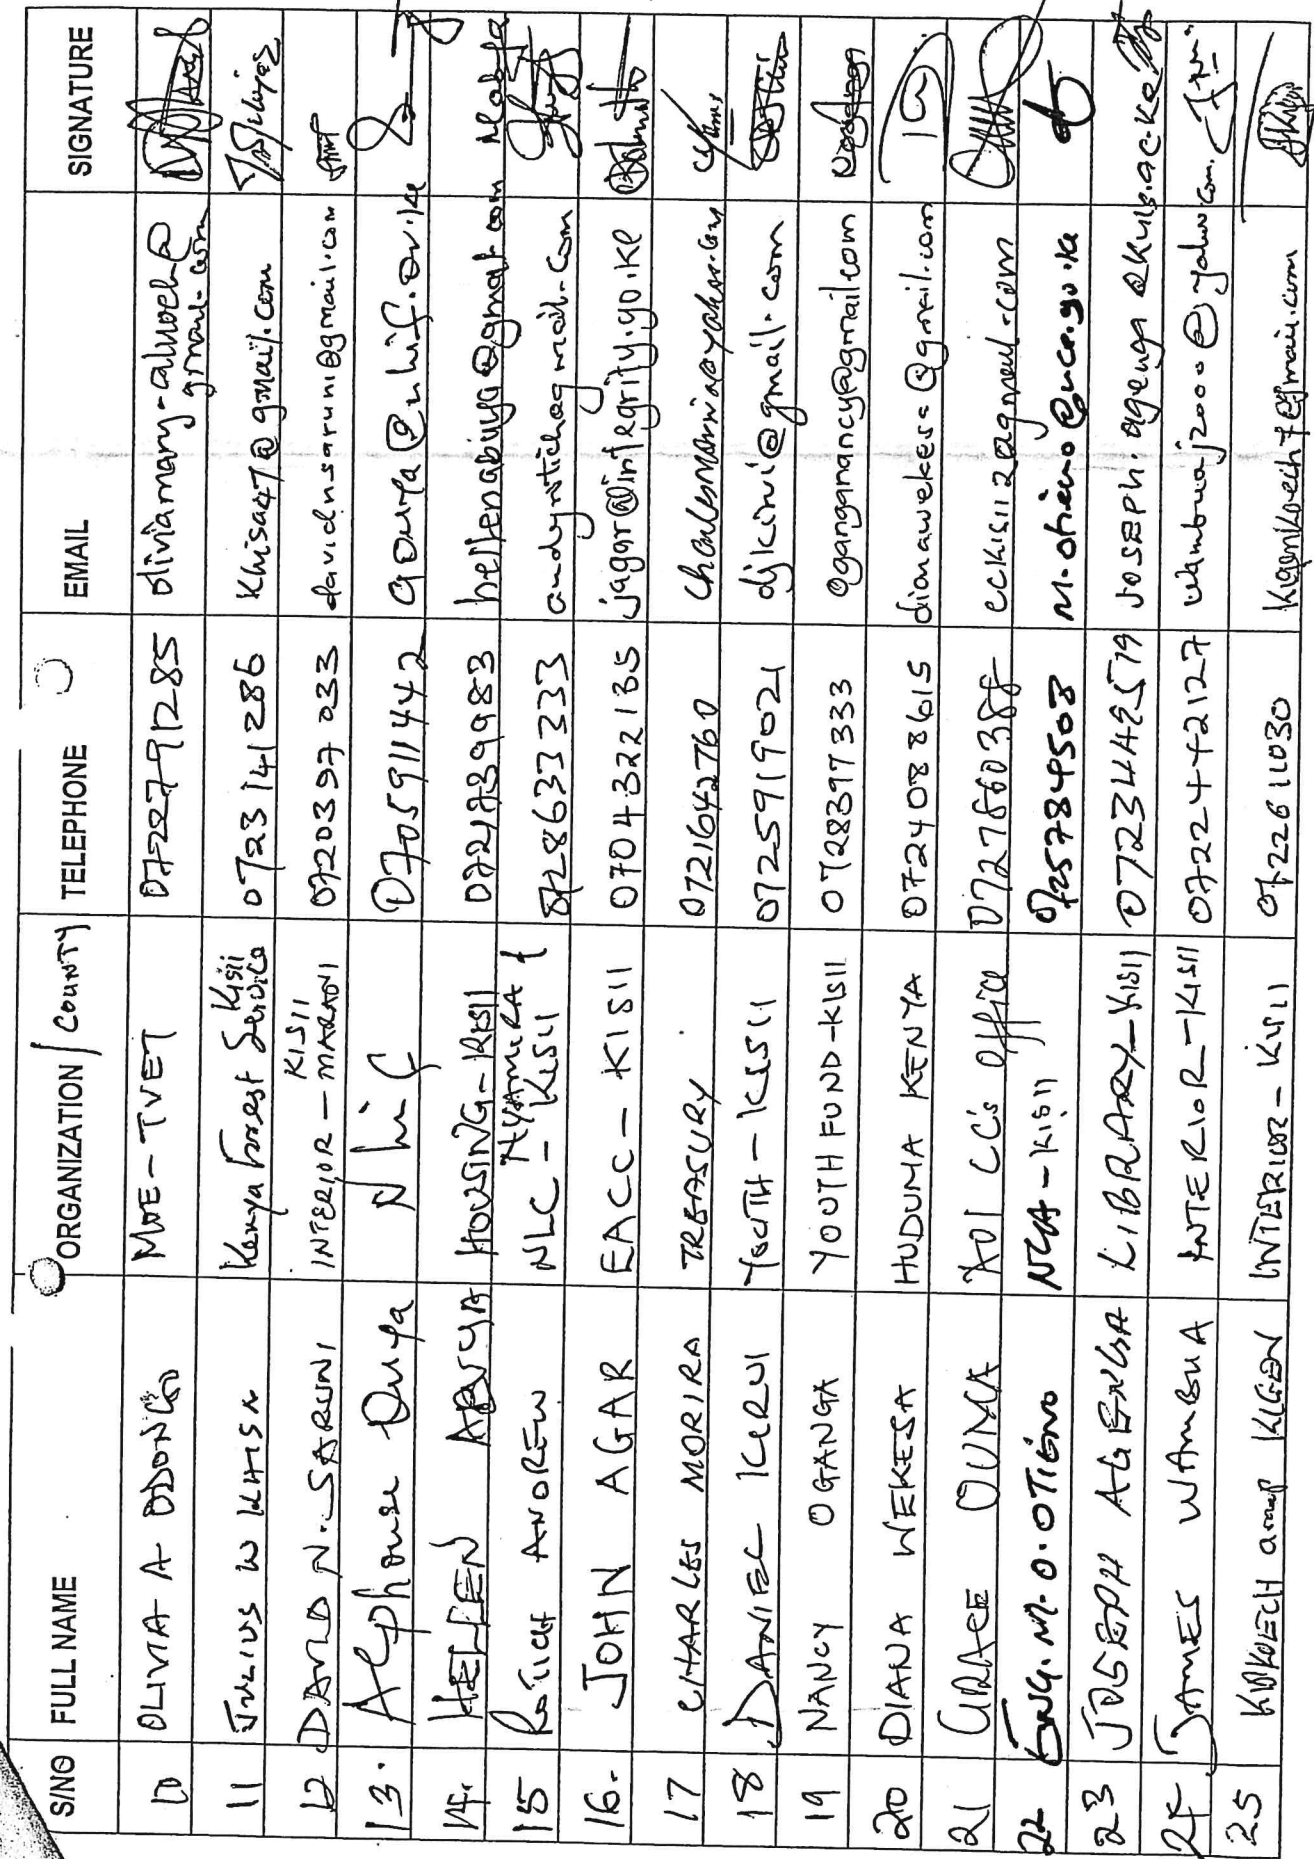 S/NO FULL NAME ORGANIZATION / COUNTY TELEPHONE EMAIL SIGNATURE
10 OLIVIA A ODONGO MOE-TVET 0722791285 oliviamary-aluoch@
gmail.com
11 JULIUS W KHISA Kenya Forest Service Kisii 0723141286 Khisa47@gmail.com
12 DAVID N. SARUNI INTERIOR - MARANI KISII 0720397033 davidnsaruni@gmail.com
13. Alphonse Ouya Nhif 0705911442 aouya@nhif.or.ke
14. HELLEN ABUYA HOUSING-KISII 0721939983 hellenabuya@gmail.com
15 ANDREW NLC - NYAMIRA & KISII 0728633333
16. JOHN AGAR EACC - KISII 0704322135 jagar@integrity.go.ke
17 CHARLES MORIRA TREASURY 0721642760
18 DANIEL KIRUI YOUTH - KISII 0725919021 djkirui@gmail.com
19 NANCY OGANGA YOUTH FUND-KISII 0728397333 oganganancy@gmail.com
20 DIANA WEKESA HUDUMA KENYA 0724088615 dianawekess@gmail.com
21 GRACE OUMA CC's Office 0727860388
22 ENG. M. O. OTIENO NCA - KISII 0725784503 m.otieno@nca.go.ke
23 JOSEPH AGENGA LIBRARY-KISII JOSEPH.agenga@knls.ac.ke
24 JAMES WAMBUA INTERIOR-KISII 0722442127 wambuaj2000@yahoo.com
25 KIPKOECH arap KIGEN INTERIOR-KISII 0722611030